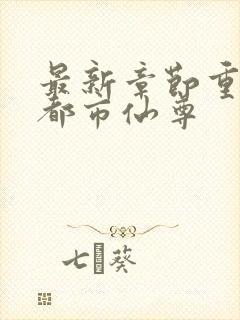 最新章節重
都市仙尊
七葵